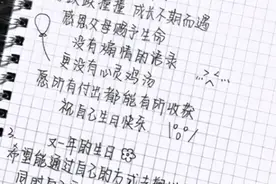 跌跌撞撞 成长不期而遇
感恩父母赐予生命
没有煽情的语录
更没有心灵鸡汤
愿所有付出都能有所收获
祝自己生日快乐
2.
又一年的生日
希望能通过自己的方式去
同时